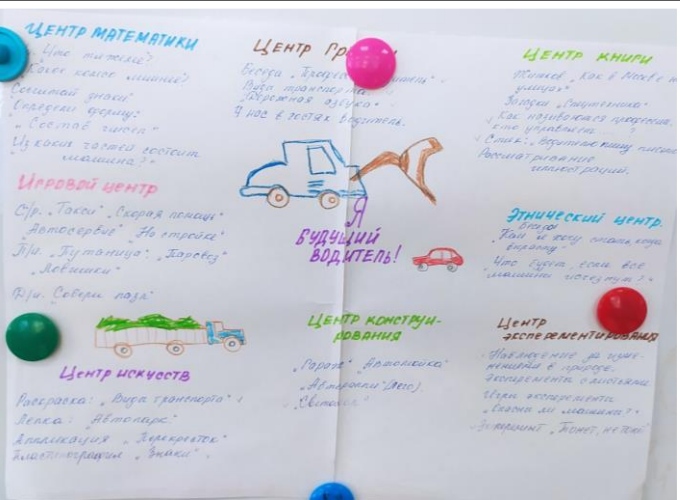 ЦЕНТР МАТЕМАТИКИ
Что тяжелее?
Какое колес машине?
Сосчитай знаки"
Определи форму:
"Состав чисел"
Из каких частей состоит
машина?"
ИГРОВОЙ ЦЕНТР
С/р. "Такси" "Скорая помощь"
"Автосервис" "На стройке"
П/и. "Путаница", "Паровоз"
"Ловишки"
Д/и. "Собери пазл"
ЦЕНТР ИСКУССТВ
Раскраска: "Виды транспорта"
Лепка: "Автопарк"
Аппликация "Перекресток"
Пластилинография "Знаки"
ЦЕНТР
Беседа
Виды транспорта
"Дорожная азбука"
У нас в гостях водитель.
Я
БУДУЩИЙ
ВОДИТЕЛЬ!
ЦЕНТР КОНСТРУИ-
РОВАНИЯ
"Гараж" "Автомойка"
(Лего)
Светофор
ЦЕНТР КНИГИ
Житков "Как в Москве
улицах"
Загадки
Как называются профессии,
кто управляет ...?
Рассматривание
иллюстраций.
ЭТНИЧЕСКИЙ ЦЕНТР.
Беседа
"Кем я хочу стать, когда
вырасту"
"Что будет, если все
машины исчезнут?"
ЦЕНТР
ЭКСПЕРЕМЕНТИРОВАНИЯ
Наблюдение за изме-
нениями в природе.
Игры эксперимента
"Опасна ли машина?"
"Тонет, не тонет"